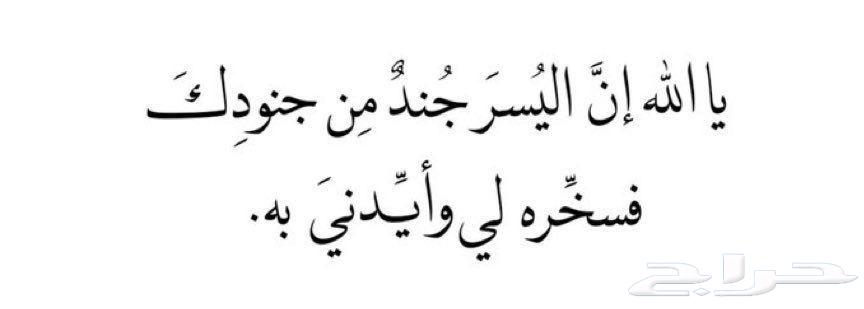 يا الله إنَّ اليُسرَ جُندٌ مِن جنودِكَ
فسخِّره لي وأيِّدنيَ به.
حراج